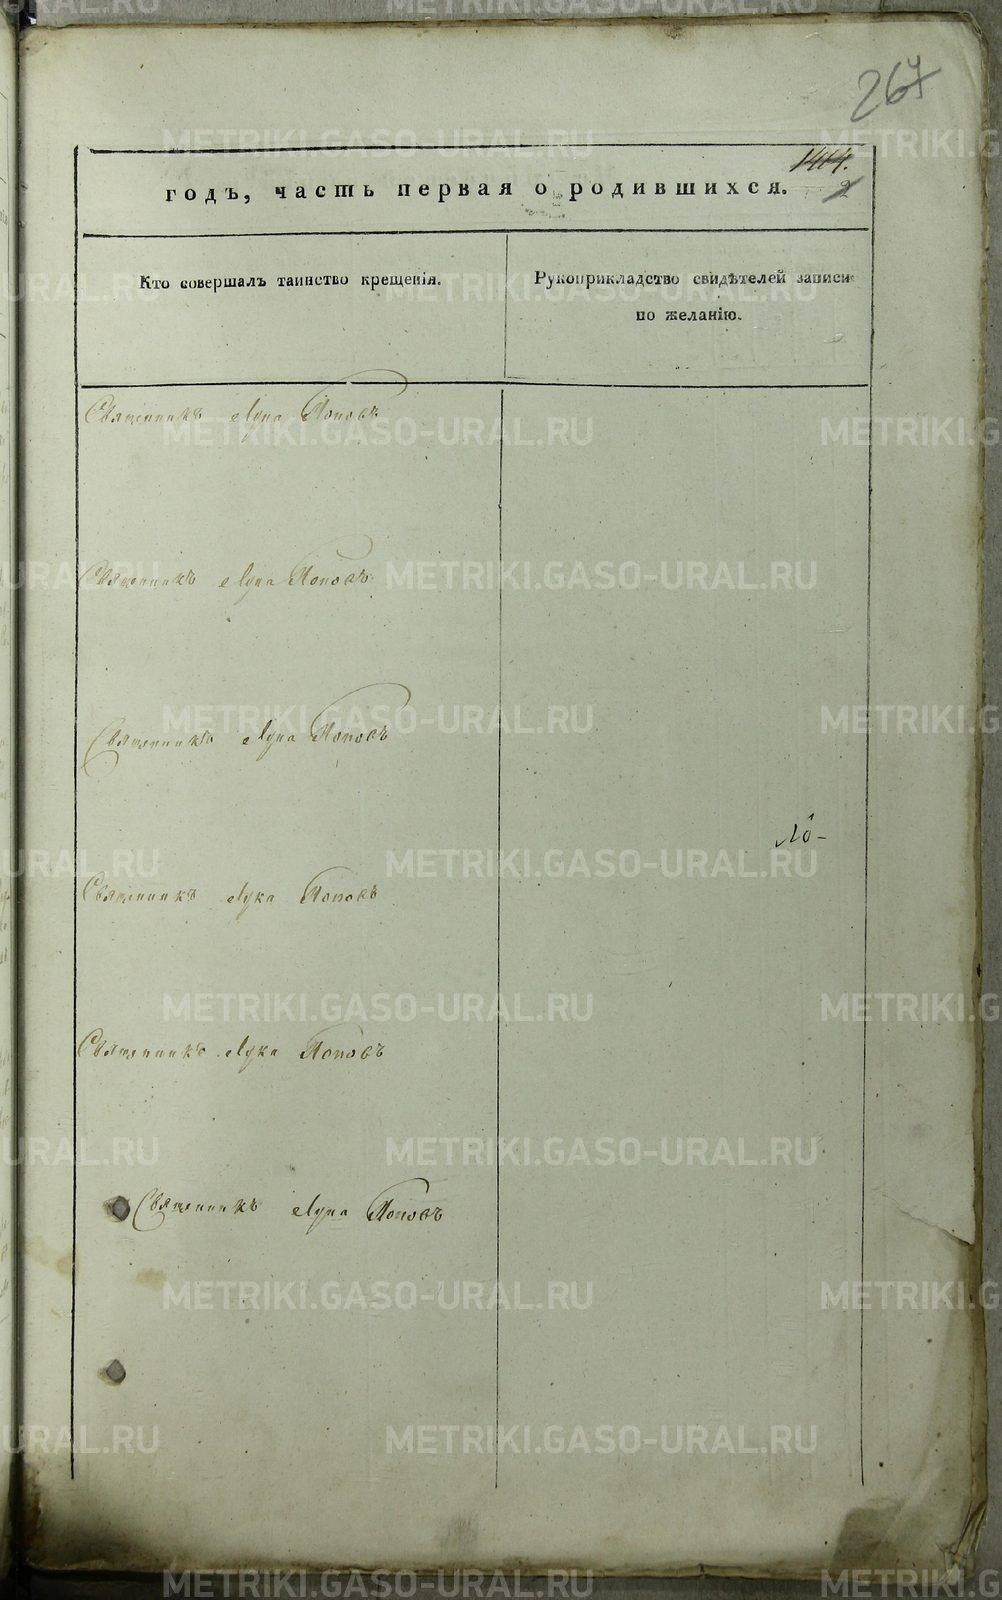 267
1414.
годъ, часть первая о родившихся. 2
Кто совершалъ таинство крещенія.
Рукоприкладство свидѣтелей записи
по желанію.
Священникъ Лука Поповъ
Священникъ Лука Поповъ
Священникъ Лука Поповъ
Священникъ Лука Поповъ
Священникъ Лука Поповъ
Священникъ Лука Поповъ
METRIKI.GASO-URAL.RU